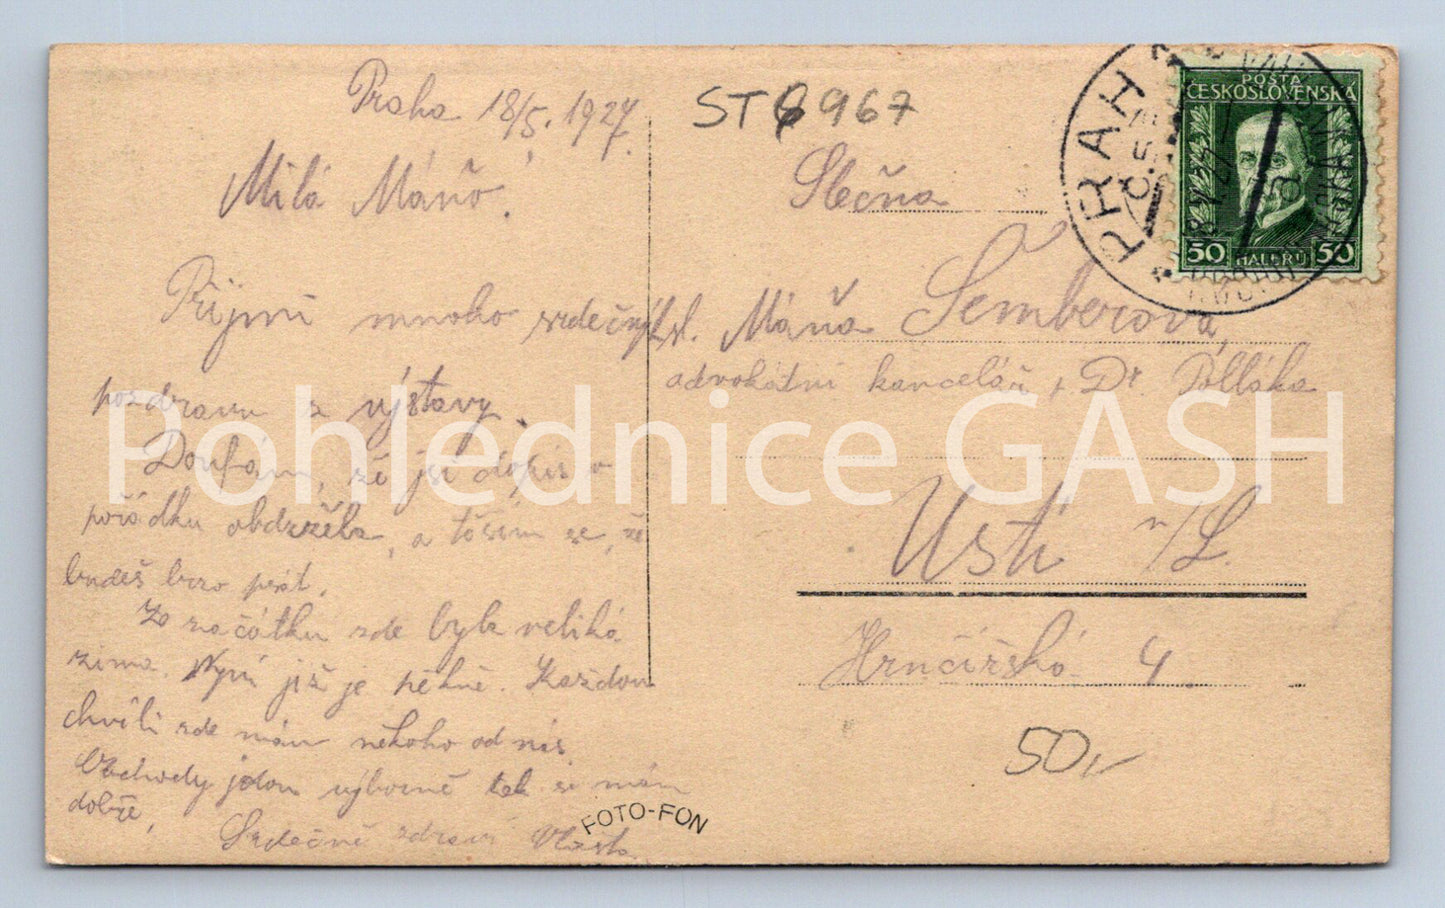 Praha 18/5. 1927.
Milá Máňo.
Přijmi mnoho srdečných
pozdravu z výstavy.
Doufám, že jsi dopis v
pořádku obdržela, a těším se, že
budeš brzo psát.
Ze začátku zde byla veliká
zima. Nyní již je pěkně. Každou
chvíli zde mám někoho od nás
Obchody jdou výborně tak se mám
dobře,
Srdečně zdraví Vlasta
FOTO-FON
ST 8967
Slečna
sl. Máňa Šemberova,
advokátní kancelář Dr Pollāka
Ústí n/L.
Hrnčířská 4.
50,-
PRAHA
POŠTA
ČESKOSLOVENSKÁ
50 HALÉŘŮ 50
Pohlednice GASH